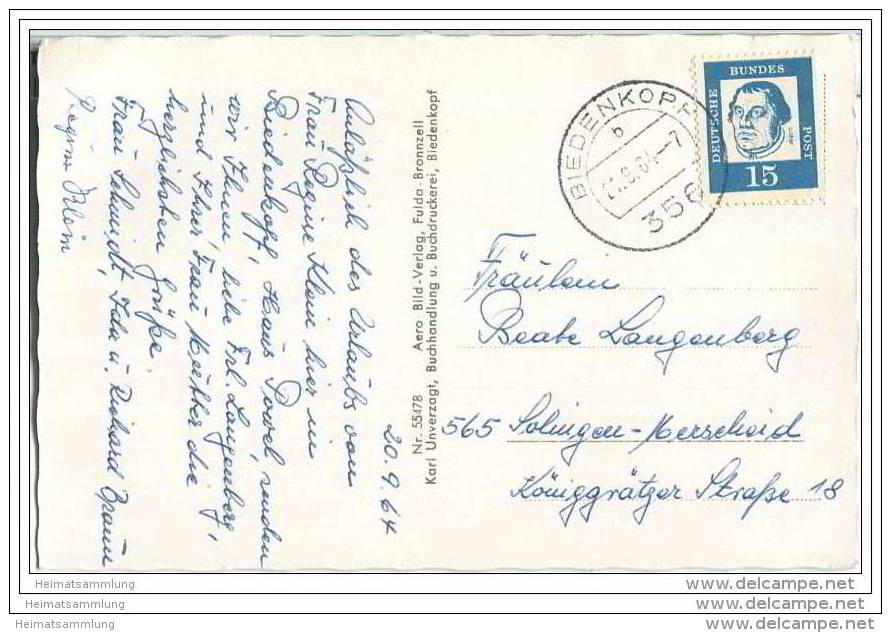 20. 9. 64
Anläßlich des Urlaubs von
Frau Regine Klein hier in
Biedenkopf, Haus Powel, senden
wir Ihnen, liebe Frl. Langenberg,
und Ihrer Frau Mutter die
herzlichsten Grüße.
Frau Schmidt, Ida u. Richard Braun
Regine Klein
Nr. 55478 Aero Bild-Verlag, Fulda-Bronnzell
Karl Unverzagt, Buchhandlung u. Buchdruckerei, Biedenkopf
BIEDENKOPF
b
21.9.64-7
356
DEUTSCHE
BUNDES
POST
15
Fräulein
Beate Langenberg
565 Solingen-Merscheid
Königgrätzer Straße 18
Heimatsammlung
Heimatsammlung
Heimatsammlung
www.delcampe.net
www.delcampe.net
www.delcampe.net